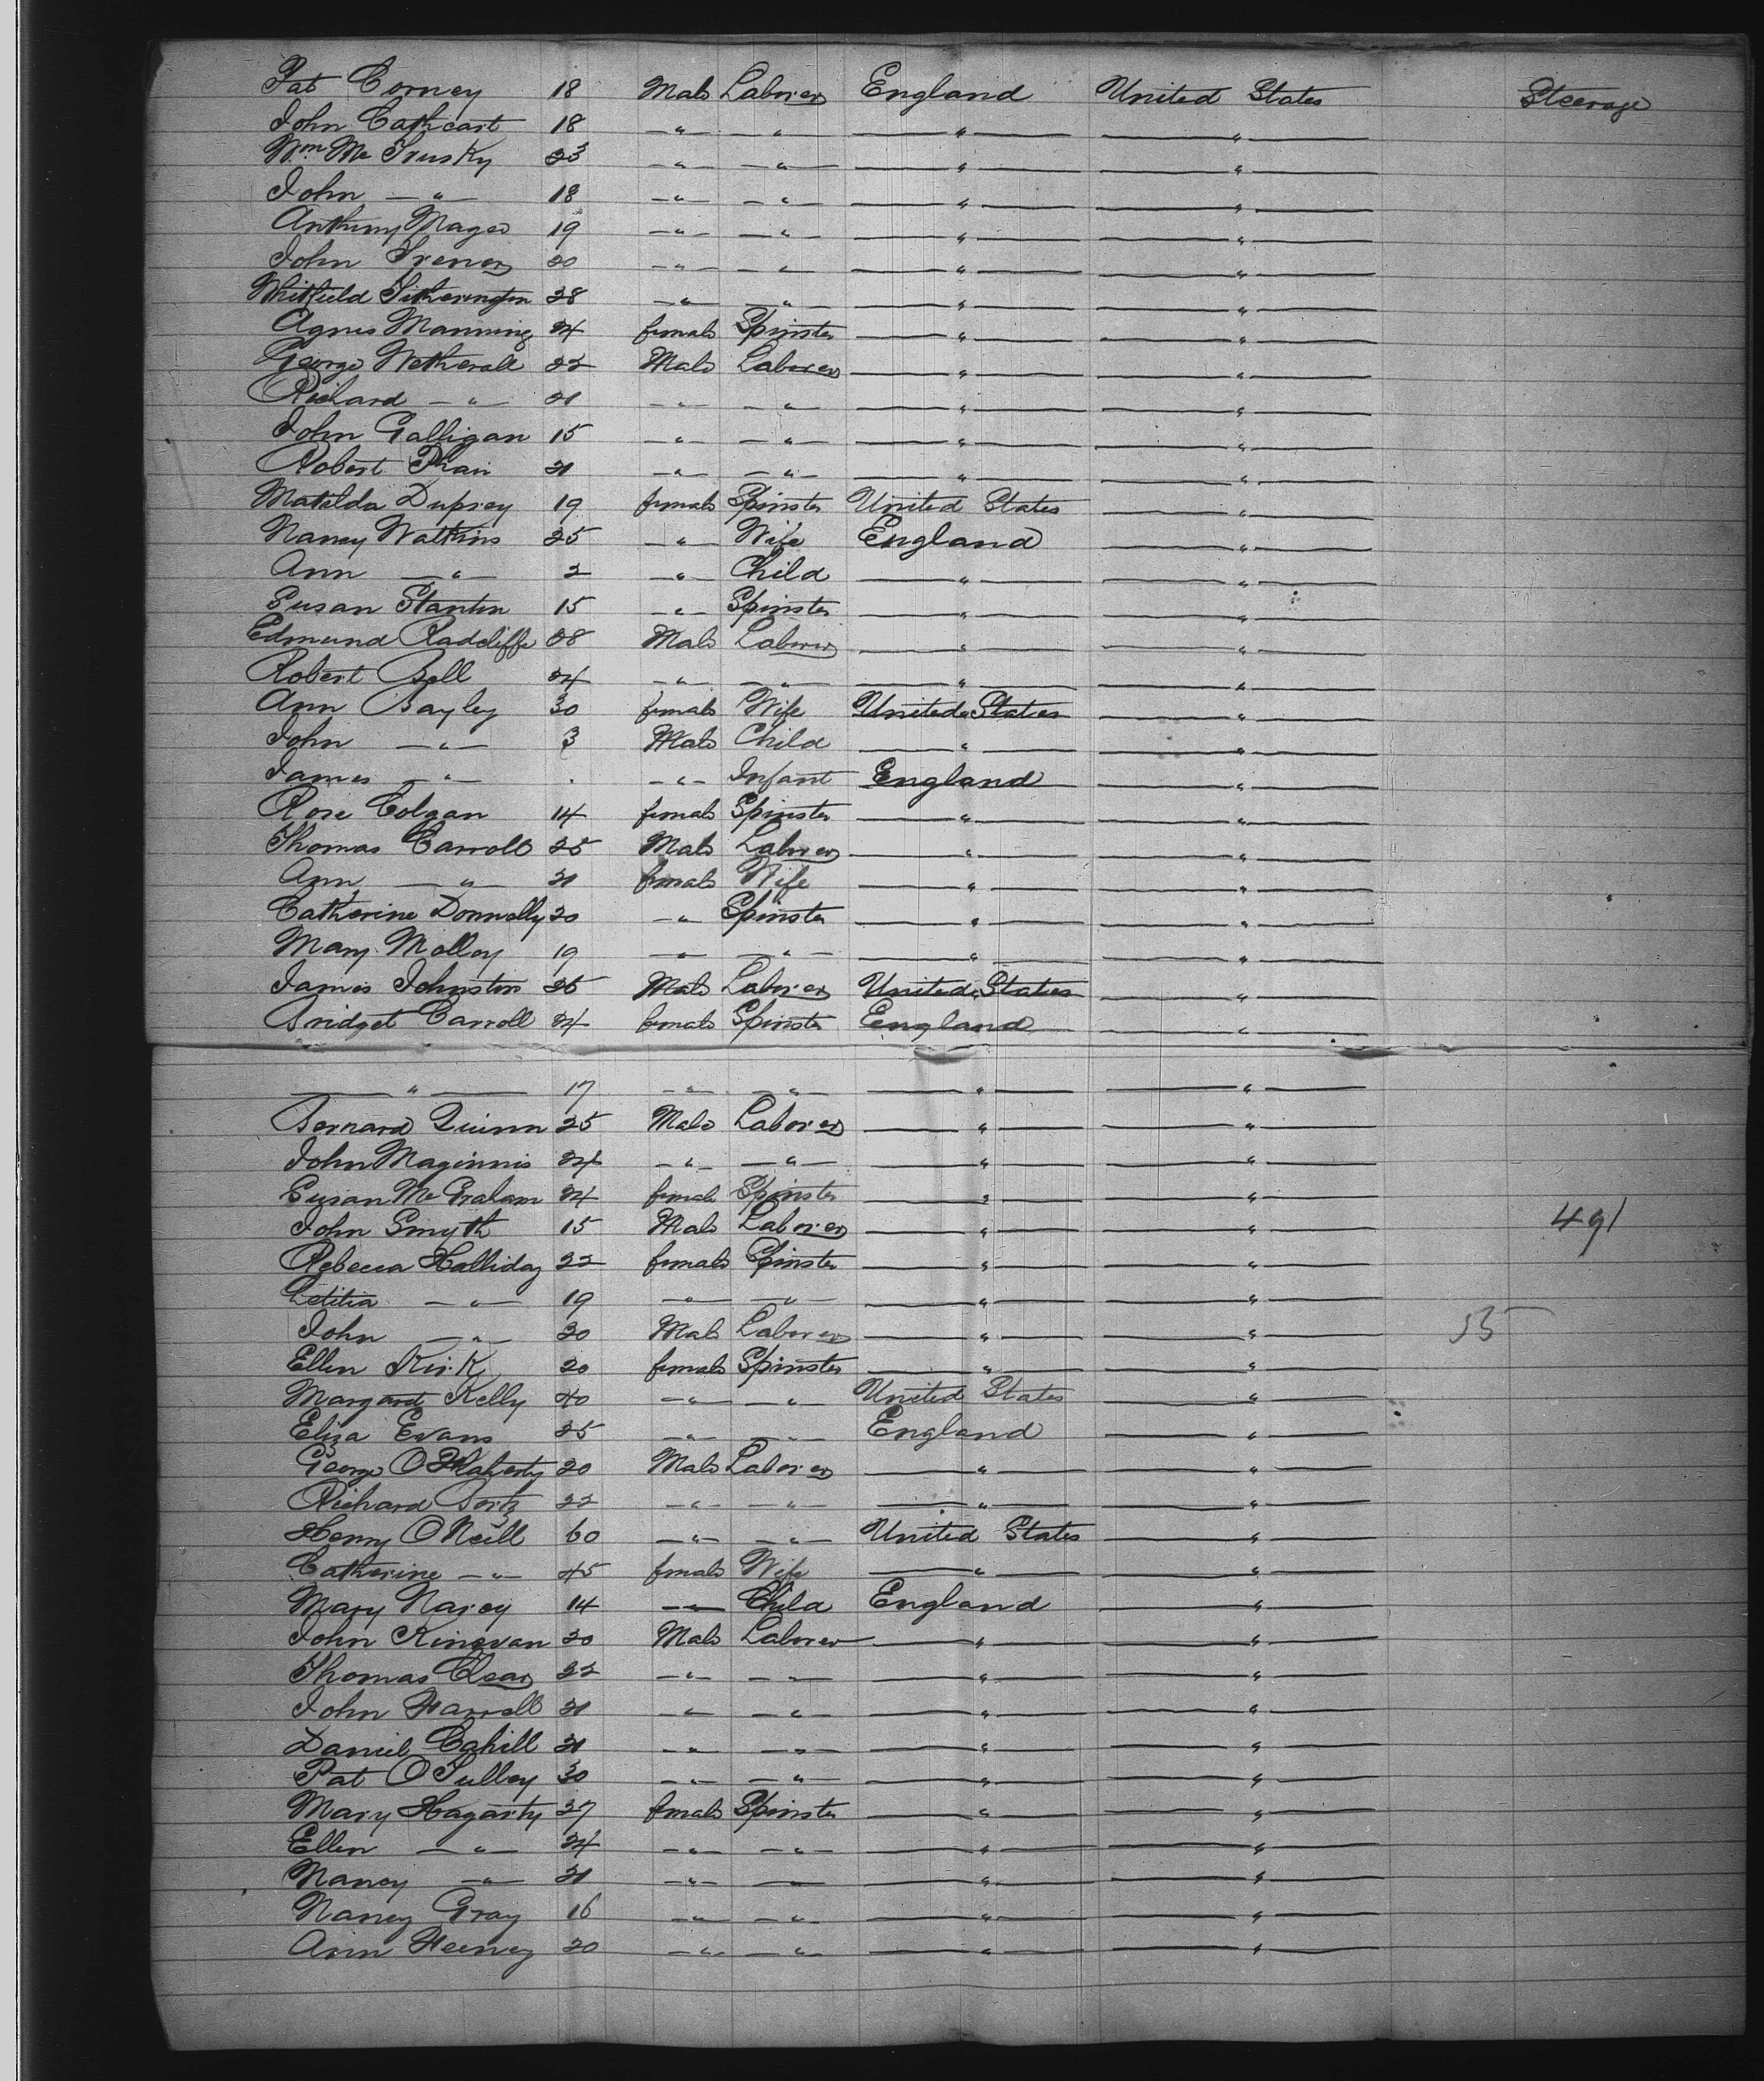 Pat Corney 18 Male Laborer England United States Steerage
John Cathcart 18 — " — — " — — " — — " —
Wm Mc Trusky 23 — " — — " — — " — — " —
John — " — 18 — " — — " — — " — — " —
Anthony Magee 19 — " — — " — — " — — " —
John Trener 20 — " — — " — — " — — " —
Whitfield Titherington 28 — " — — " — — " — — " —
Agnes Manning 24 female Spinster — " — — " —
George Wetherall 22 Male Laborer — " — — " —
Richard — " — 21 — " — — " — — " — — " —
John Galligan 15 — " — — " — — " — — " —
Robert 21 — " — — " — — " — — " —
Matilda Duprey 19 female Spinster United States — " —
Nancy Watkins 25 — " — Wife England — " —
Ann — " — 2 — " — Child — " — — " —
Susan Stanton 15 — " — Spinster — " — — " —
Edmund Radcliffe 28 Male Laborer — " — — " —
Robert Bell 24 — " — — " — — " — — " —
Ann Bayley 30 female Wife United States — " —
John — " — 3 Male Child — " — — " —
James — " — . — " — Infant England — " —
Rose Colgan 14 female Spinster — " — — " —
Thomas Carroll 25 Male Laborer — " — — " —
Ann — " — 21 female Wife — " — — " —
Catherine Donnelly 20 — " — Spinster — " — — " —
Mary Molloy 19 — " — — " — — " — — " —
James Johnston 25 Male Laborer United States — " —
Bridget Carroll 24 female Spinster England — " —
— " — 17 — " — — " — — " — — " —
Bernard Quinn 25 Male Laborer — " — — " —
John Maginnis 24 — " — — " — — " — — " —
Susan Mc Graham 24 female Spinster — " — — " —
John Smyth 15 Male Laborer — " — — " — 491
Rebecca Halliday 22 female Spinster — " — — " —
Letitia — " — 19 — " — — " — — " — — " —
John — " — 20 Male Laborer — " — — " — 55
Ellen Kirk 20 female Spinster — " — — " —
Margaret Kelly 40 — " — — " — United States — " —
Eliza Evans 25 — " — — " — England — " —
George O'Flaherty 20 Male Laborer — " — — " —
Richard 22 — " — — " — — " — — " —
Henry O'Neill 60 — " — — " — United States — " —
Catherine — " — 45 female Wife — " — — " —
Mary Narey 14 — " — Child England — " —
John Kinevan 20 Male Laborer — " — — " —
Thomas Clear 22 — " — — " — — " — — " —
John Farrell 21 — " — — " — — " — — " —
Daniel Cahill 21 — " — — " — — " — — " —
Pat O'Sulley 30 — " — — " — — " — — " —
Mary Hagarty 27 female Spinster — " — — " —
Ellen — " — 24 — " — — " — — " — — " —
Nancy — " — 21 — " — — " — — " — — " —
Nancy Gray 16 — " — — " — — " — — " —
Ann Feeney 20 — " — — " — — " — — " —